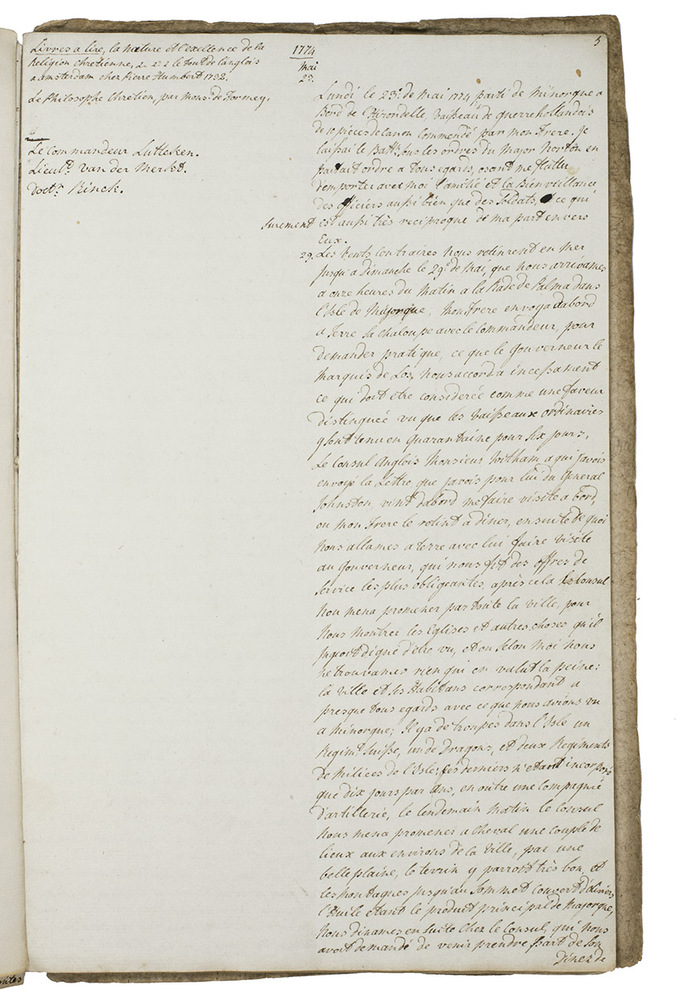 5
Livres a lire, la Nature et l'excellence de la
Religion Chretienne, 2. le tout de l'anglois
a amsterdam chez Pierre Humbert 1738.
Le Philosophe Chretien, par Mons:r de Formey.
Le Commandeur Lutteken.
Lieut:t van der Merkt.
Doct:r Rinck.
1774
Mai
23.
Lundi le 23:e de Mai 1774 parti de Minorque a
Bord de l'hirondelle, Vaisseau de guerre hollandois
de pièces de canon commendé par mon Frere. Je
laissai le Bat:n sous les ordres du Major Norton en
parfait ordre a tous egards, osant me flatter
d'emporter avec moi l'amitié et la Bienveillance
des officiers aussi bien que des Soldats, ce qui
surement est aussi très reciproque de ma part envers
Eux.
29. Les Vents Contraires Nous retinrent en Mer
jusqu'a Dimanche le 29:e de Mai, que nous arrivames
a onze heures du Matin a la Rade de Palma dans
l'Isle de Majorque, Mon Frere envoya d'abord
a Terre sa chaloupe avec le Commandeur, pour
demander pratique, ce que le Gouverneur le
Marquis de Los, Nous accorda incessament
ce qui doit etre considerée comme une faveur
distinguée vu que les Vaisseaux ordinaires
y sont tenu en Quarantaine pour Six jours.
Le Consul Anglois Monsieur a qui j'avois
envoyé la Lettre que j'avois pour lui du General
Johnston, vint d'abord me faire visite a bord,
ou mon Frere le retint a diner, ensuite de quoi
Nous allames a terre avec lui faire visite
au Gouverneur, qui nous fit des offres de
service les plus obligeantes, après cela le Consul
Nou mena promener par toute la ville, pour
Nous Montrer les Eglises et autres choses qu'il
jugeoit digne d'etre vu, et ou selon Moi nous
ne trouvames rien qui en valut la peine;
la Ville et ses Habitans correspondant a
presque tous egards avec ce que Nous avions vu
a Minorque; Il y a de troupes dans l'Isle un
Regim:t Suisse, un de Dragons, et deux Regiments
de Milices de l'Isle, ces derniers n'etant incorporé
que dix jours par Ans, en outre une Compagnie
d'artillerie, le lendemain Matin le Consul
Nous mena promener a cheval une couple de
lieux aux environs de la Ville, par une
belle plaine, le terrain y paroit très bon, et
les Montagnes jusqu'au Sommet couvert d'oliviers,
l'huile etant le produit principal de Majorque,
Nous dinames en suite chez le Consul, qui Nous
avoit demandé de venir prendre part de son
diner de